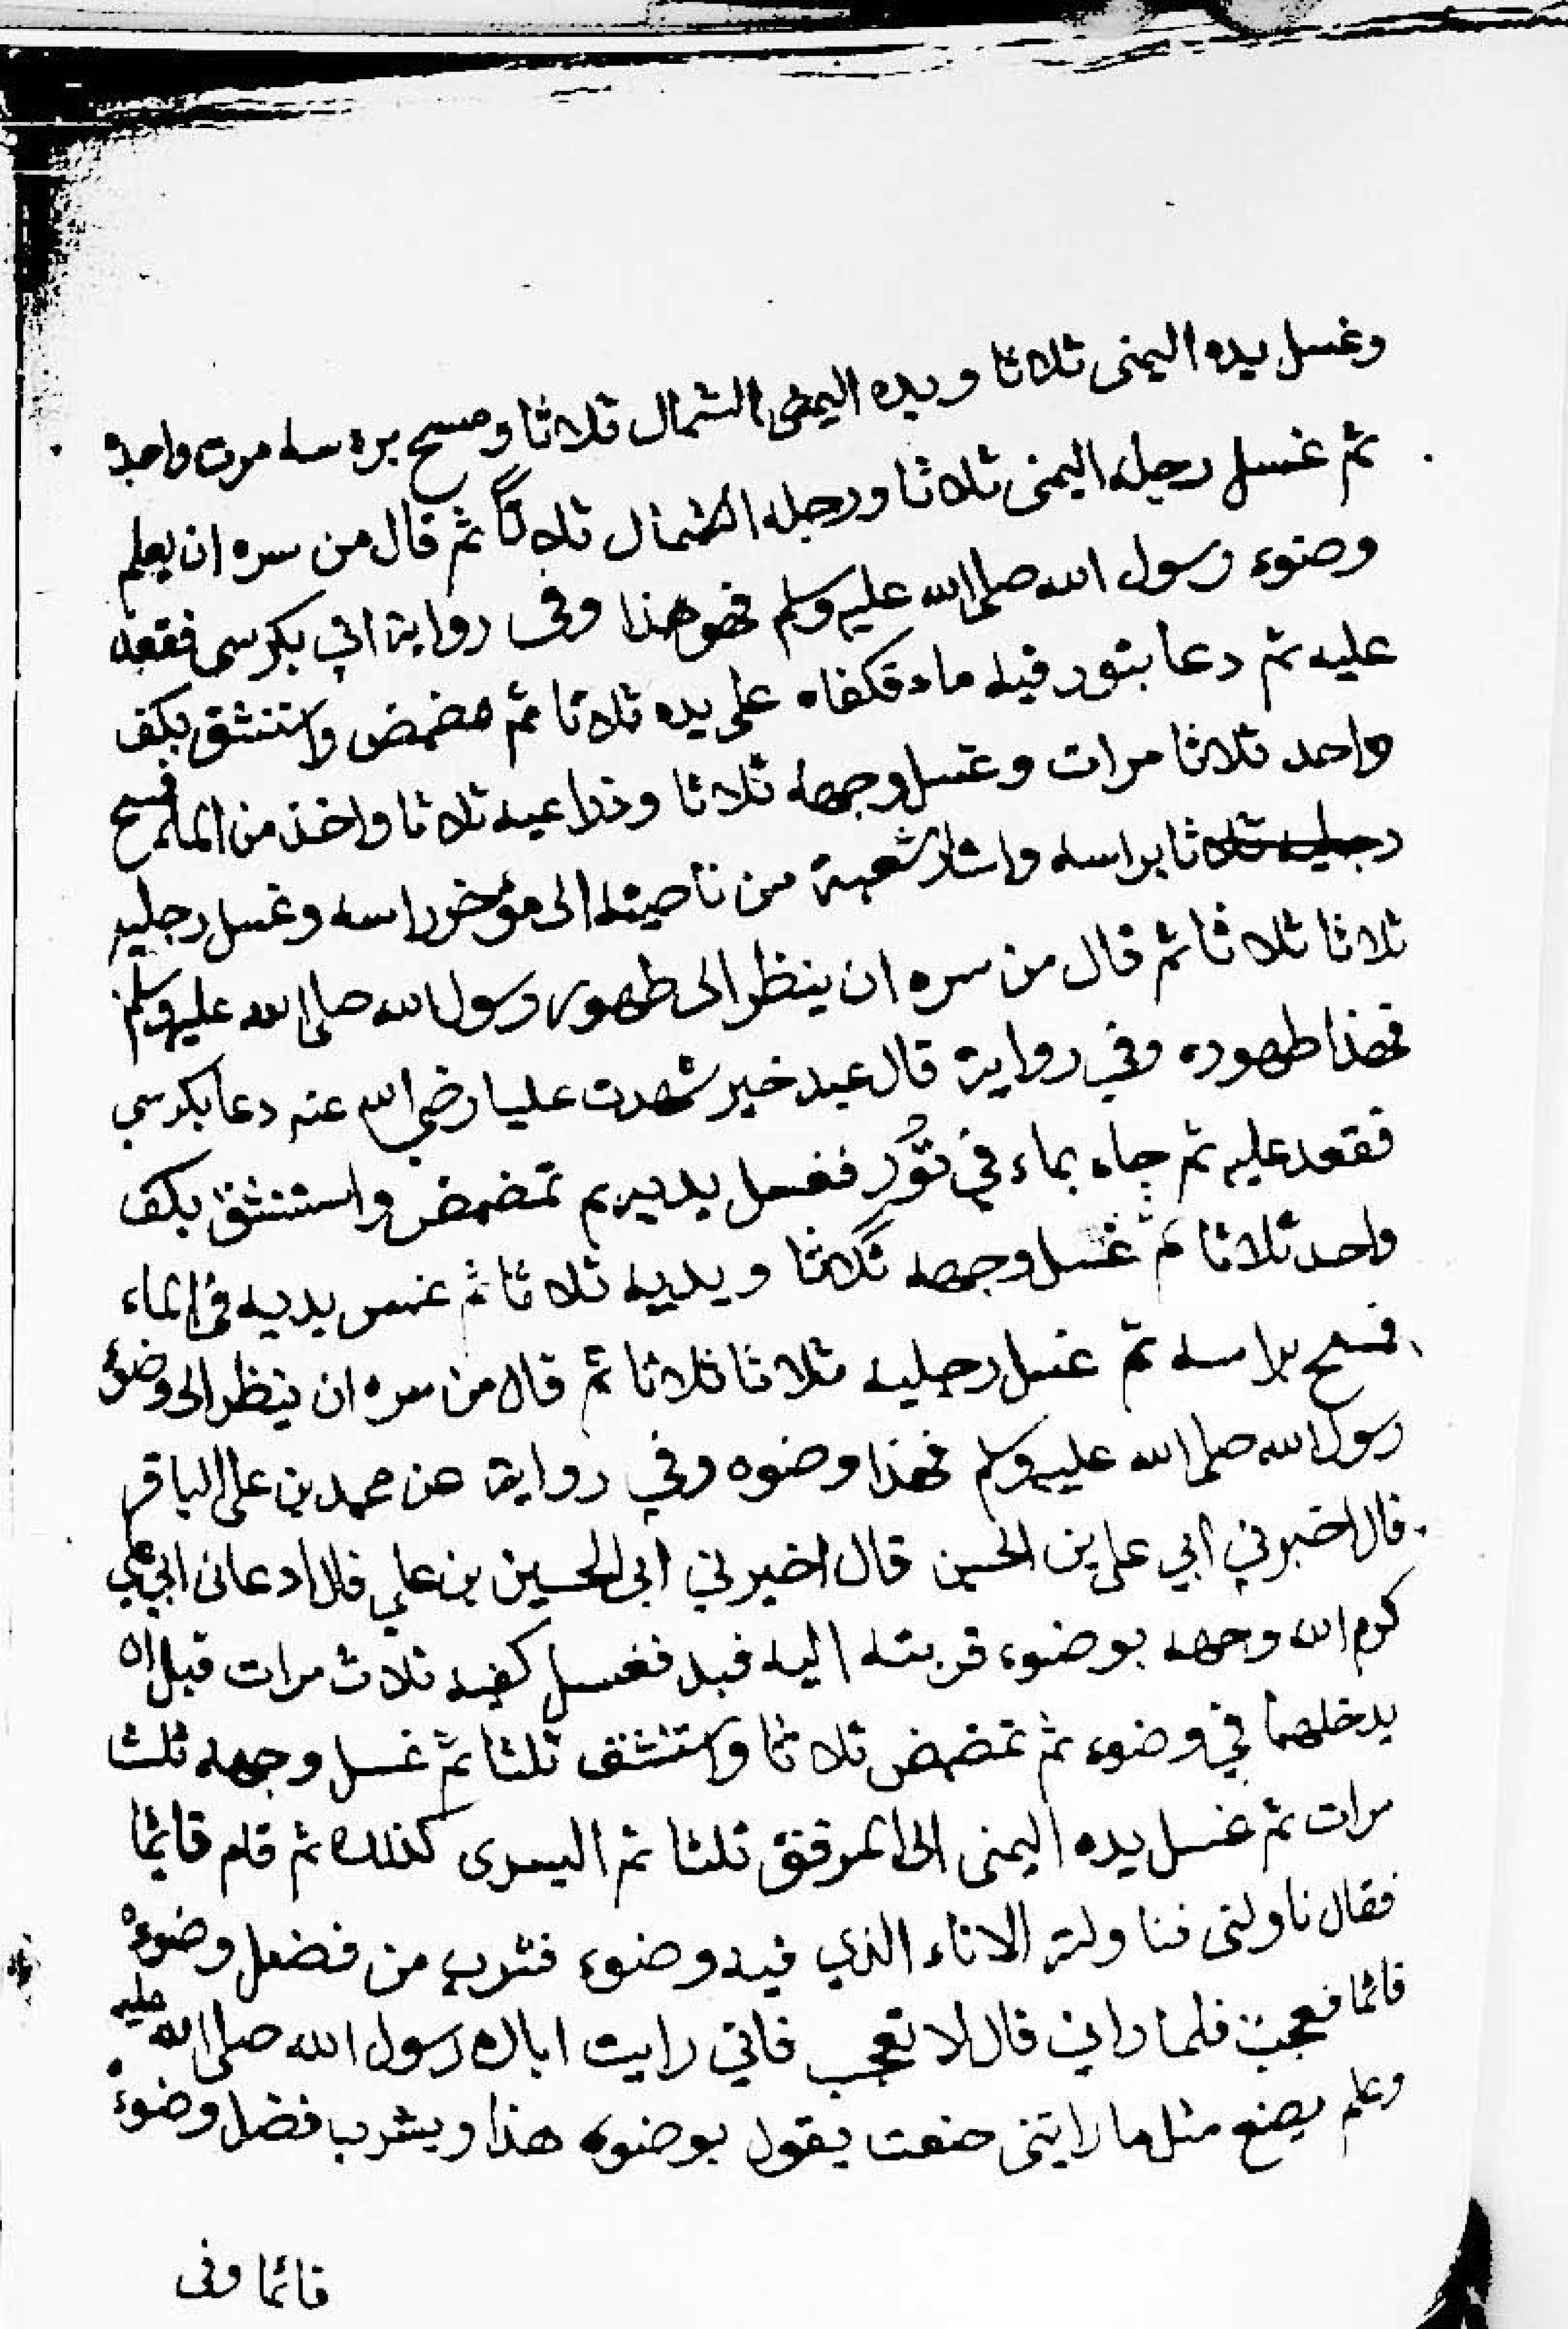 وغسل يده اليمنى ثلاثا ويده اليمنى الشمال ثلاثا ومسح بره سه مرت واحدة
ثم غسل رجله اليمنى ثلاثا ورجله الشمال ثلاثا ثم قال من سره ان يعلم
وضوء رسول الله صلى الله عليه وسلم فهو هذا وفى رواية اتي بكرسى فقعد
عليه ثم دعا بتور فيه ماء فكفاه على يده ثلاثا ثم مضمض واستنشق بكف
واحد ثلاثا مرات وغسل وجهه ثلاثا وذراعيه ثلاثا واخذ من الماء فمسح
رجليه ثلاثا براسه واشار شعبة من ناصيته الى مؤخر راسه وغسل رجليه
ثلاثا ثلاثا ثم قال من سره ان ينظر الى طهور رسول الله صلى الله عليه وسلم
فهذا طهوره وفي رواية قال عبد خير شهدت عليا رضي الله عنه دعا بكرسي
فقعد عليه ثم جاه بماء في تور فغسل يديه ثم تمضمض واستنشق بكف
واحد ثلاثا ثم غسل وجهه ثلاثا ويديه ثلاثا ثم غمس يديه في الماء
فمسح براسه ثم غسل رجليه ثلاثا ثلاثا ثم قال من سره ان ينظر الى وضوء
رسول الله صلى الله عليه وسلم فهذا وضوه وفي رواية عن محمد بن على الباقر
قال اخبرني ابي على بن الحسين قال اخبرني ابى الحسين بن علي قال ادعانى ابي علي
كرم الله وجهه بوضوء قربته اليه فبد فغسل كفيه ثلاث مرات قبل ان
يدخلهما في وضوء ثم تمضمض ثلاثا واستنشق ثلثا ثم غسل وجهه ثلث
مرات ثم غسل يده اليمنى الى المرفق ثلثا ثم اليسرى كذلك ثم قام قائما
فقال ناولنى فناولته الاناء الذي فيه وضوء فشرب من فضل وضوءه
قائما فعجبت فلما رانى قال لا تعجب فاني رايت اباك رسول الله صلى الله عليه
وسلم يصنع مثل ما رايتنى صنعت يقول بوضوءه هذا ويشرب فضل وضوءه
قائما وفى